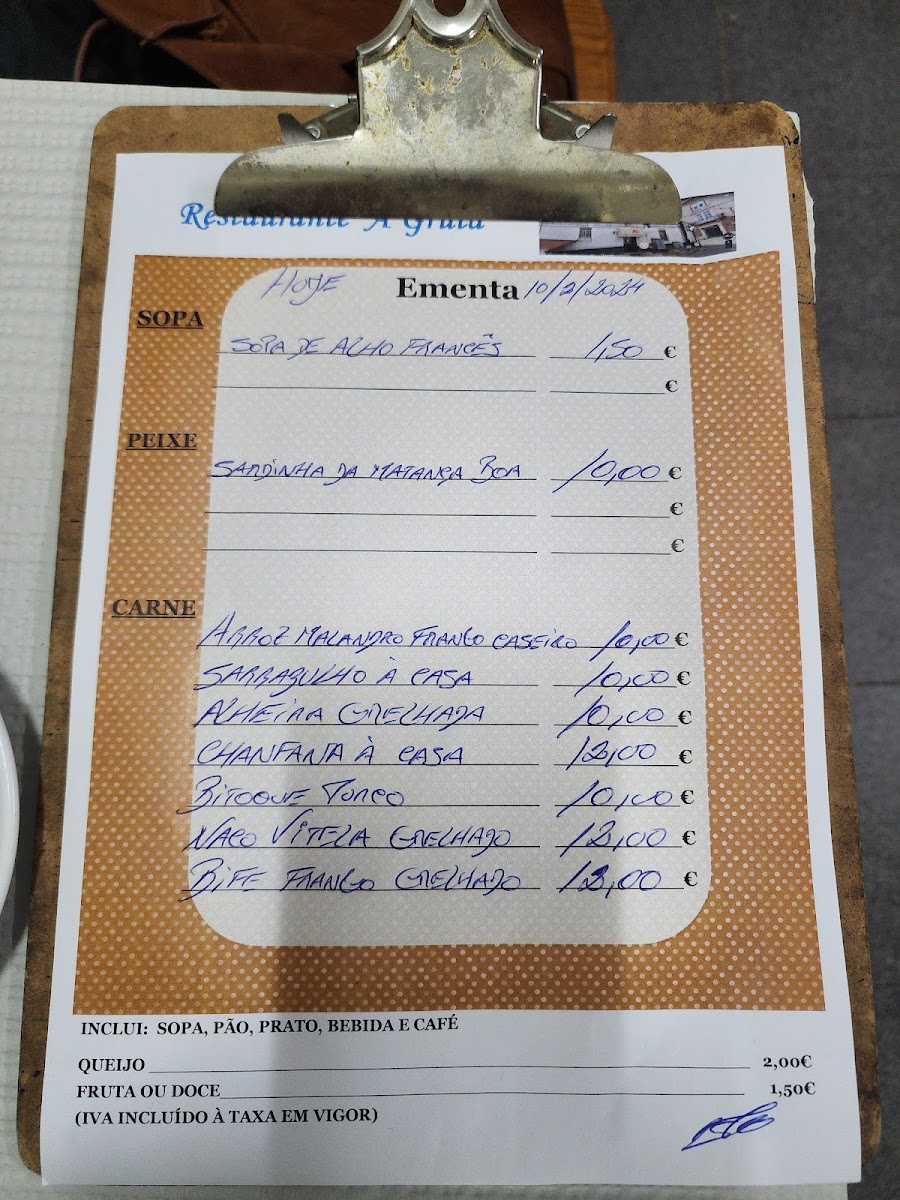 Restaurante "A Gruta"
HOJE Ementa 10/2/2024
SOPA
SOPA DE ALHO FRANCÊS 1,50 €
€
PEIXE
SARDINHA DA MATANÇA BOA 10,00 €
€
€
CARNE
ARROZ MALANDRO FRANGO CASEIRO 10,00 €
SARRABULHO À CASA 10,00 €
ALHEIRA GRELHADA 10,00 €
CHANFANA À CASA 12,00 €
BITOQUE PORCO 10,00 €
NACO VITELA GRELHADO 12,00 €
BIFE FRANGO GRELHADO 12,00 €
INCLUI: SOPA, PÃO, PRATO, BEBIDA E CAFÉ
QUEIJO 2,00€
FRUTA OU DOCE 1,50€
(IVA INCLUÍDO À TAXA EM VIGOR)